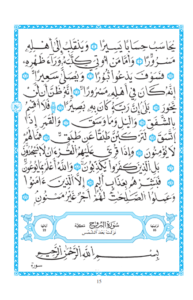 يُحَاسَبُ حِسَابًا يَسِيرًا وَيَنقَلِبُ إِلَىٰ أَهْلِهِ
مَسْرُورًا وَأَمَّا مَنْ أُوتِيَ كِتَابَهُ وَرَاءَ ظَهْرِهِ
فَسَوْفَ يَدْعُو ثُبُورًا وَيَصْلَىٰ سَعِيرًا إِنَّهُ
كَانَ فِي أَهْلِهِ مَسْرُورًا إِنَّهُ ظَنَّ أَن لَّن
يَحُورَ بَلَىٰ إِنَّ رَبَّهُ كَانَ بِهِ بَصِيرًا فَلَا أُقْسِمُ
بِالشَّفَقِ وَاللَّيْلِ وَمَا وَسَقَ وَالْقَمَرِ إِذَا
اتَّسَقَ لَتَرْكَبُنَّ طَبَقًا عَن طَبَقٍ فَمَا لَهُمْ
لَا يُؤْمِنُونَ وَإِذَا قُرِئَ عَلَيْهِمُ الْقُرْآنُ لَا يَسْجُدُونَ
بَلِ الَّذِينَ كَفَرُوا يُكَذِّبُونَ وَاللَّهُ أَعْلَمُ بِمَا يُوعُونَ
فَبَشِّرْهُم بِعَذَابٍ أَلِيمٍ إِلَّا الَّذِينَ آمَنُوا
وَعَمِلُوا الصَّالِحَاتِ لَهُمْ أَجْرٌ غَيْرُ مَمْنُونٍ
سُورَةُ الْبُرُوجِ مَكِّيَّة
نزلت بعد الشمس
بِسْمِ اللَّهِ الرَّحْمَٰنِ الرَّحِيمِ
سورة